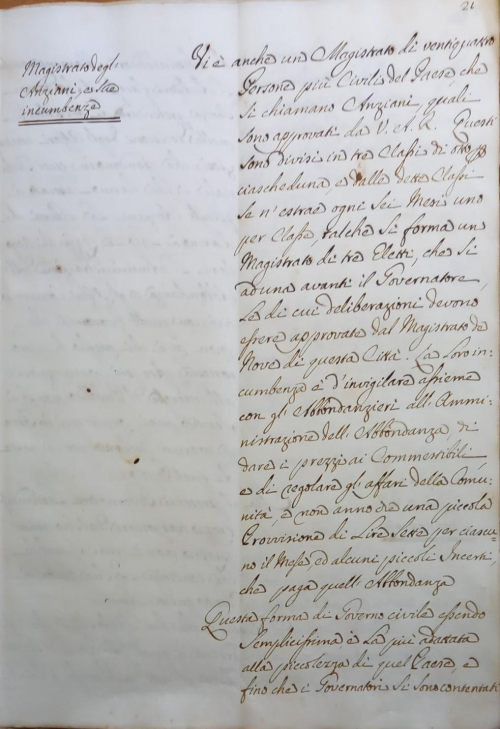 21
Magistrato degli
Anziani, e sue
incumbenze
Vi è anche un Magistrato di ventiquattro
Persone più Civili del Paese, che
si chiamano Anziani, quali
sono approvati da V. A. R. Questi
sono divisi in tre Classi di otto
ciascheduna, e dalle dette Classi
se n'estrae ogni sei Mesi uno
per Classe, talche si forma un
Magistrato di tre Eletti, che si
aduna avanti il Governatore,
Le di cui deliberazioni devono
essere approvate dal Magistrato de
Nove di questa Città. La Loro in:
cumbenza è d'invigilare assieme
con gl'Abbondanzieri all'Ammi:
nistrazione dell'Abbondanza, di
dare i prezzi ai Commestibili
e di regolare gl'affari della Comu:
nità, e non anno che una piccola
Provvisione di Lire Sette per ciascu:
no il Mese, ed alcuni piccoli Incerti,
che paga quell'Abbondanza
Questa forma di Governo civile essendo
semplicissima, è La più adattata
alla piccolezza di quel Paese, e
fino che i Governatori si sono contentati